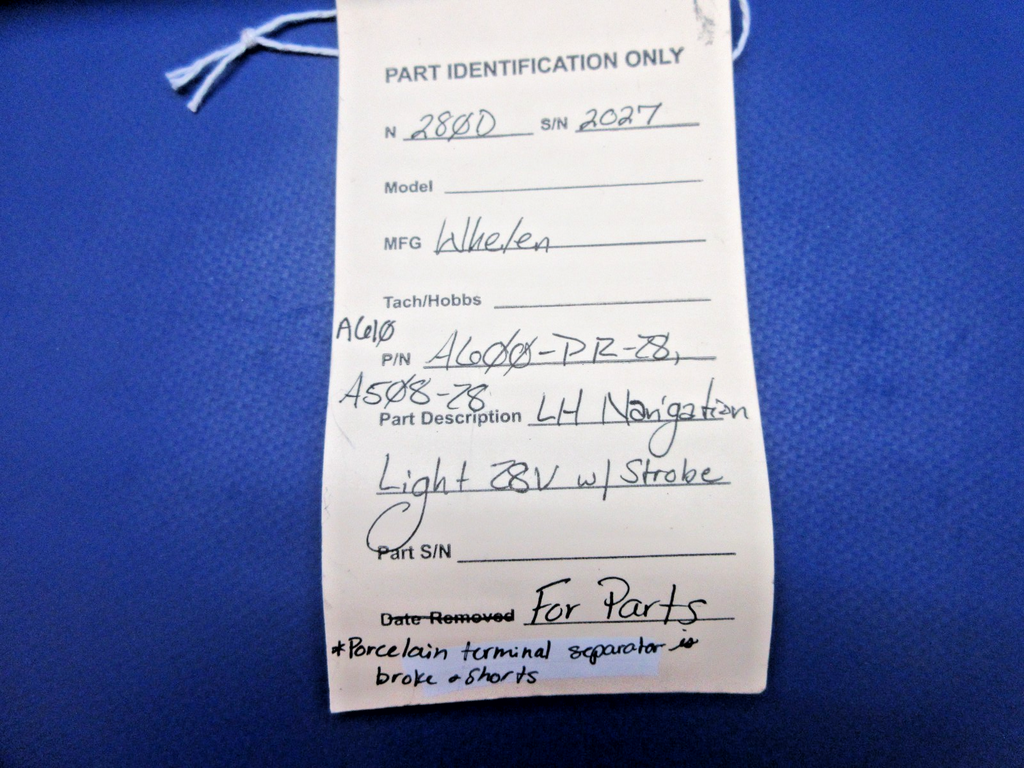 PART IDENTIFICATION ONLY
N 280D S/N 2027
Model
MFG Whelen
Tach/Hobbs
A610
P/N A600-DR-28,
A508-28
Part Description LH Navigation
Light 28V w/ Strobe
Part S/N
Date Removed For Parts
*Porcelain terminal separator is
broke & shorts